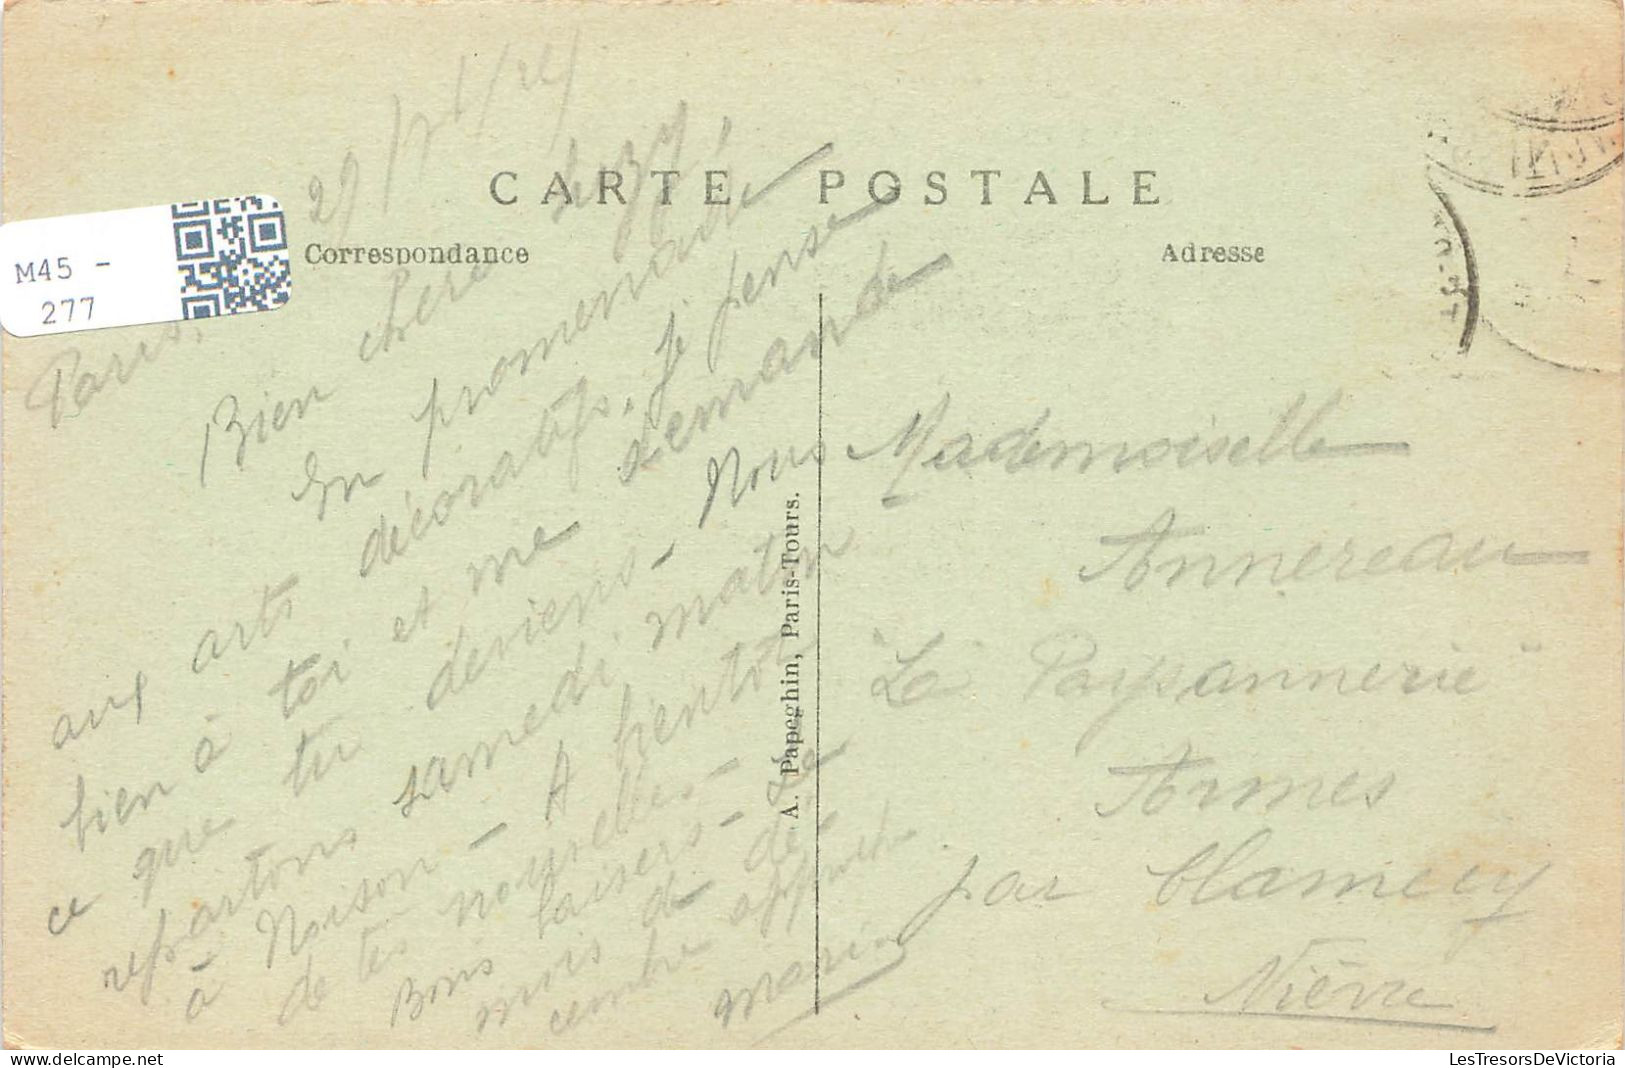 CARTE POSTALE
Correspondance
Adresse
M45 -
277
Paris,
Bien chère Suzy,
En promenade
aux arts décoratifs. je pense
bien à toi et me demande
ce que tu deviens - Nous
repartons samedi matin
à Noison - A bientôt
de tes nouvelles -
Bons baisers - Le
mois de dé-
cembre approche
A. Papeghin, Paris-Tours.
Mademoiselle
Annereau
"La Paysannerie"
Armes
par Clamecy
Nièvre
LesTresorsDeVictoria
LesTresorsDeVictoria.com